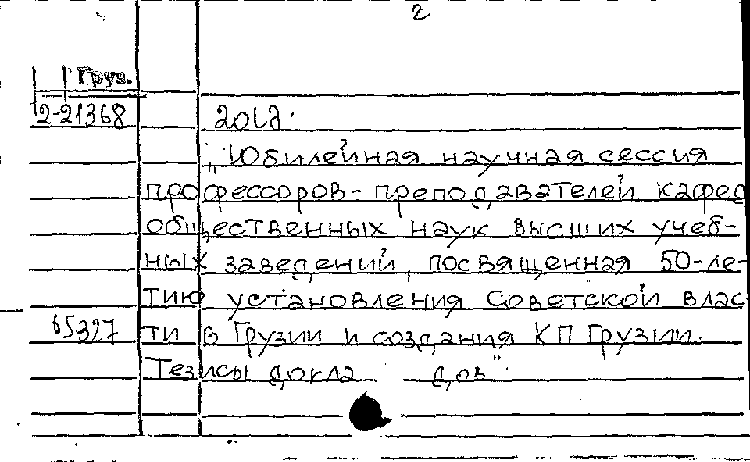 2
Груз.
2-21368
201д.
„Юбилейная научная сессия
профессоров-преподавателей кафед
общественных наук высших учеб-
ных заведений, посвященная 50-ле-
тию установления Советской влас
65327 ти в Грузии и создания КП Грузии.
Тезисы докла дов".